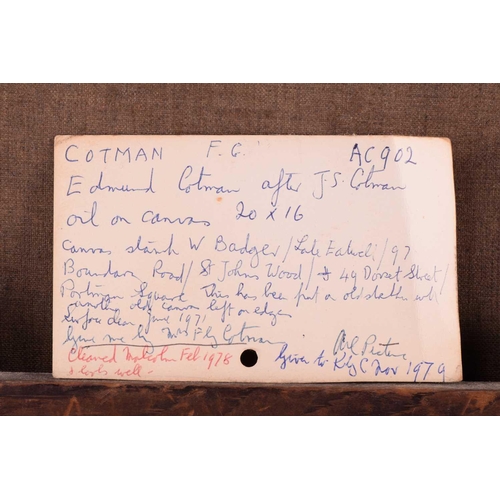 COTMAN F. G. AC902
Edmund Cotman after J.S. Cotman
oil on canvas 20 x 16
Canvas stamp W Badger / Late Eatwell / 97
Boundary Road / St Johns Wood / & 49 Dorset Street /
Portman Square This has been put on old stretcher with
old canvas left on edges
Surface clean June 1971
Give me by Mrs F Cotman
Cleaved Malcolm Feb 1978
& looks well -
Oil Picture
Given to KBJC Nov 1979